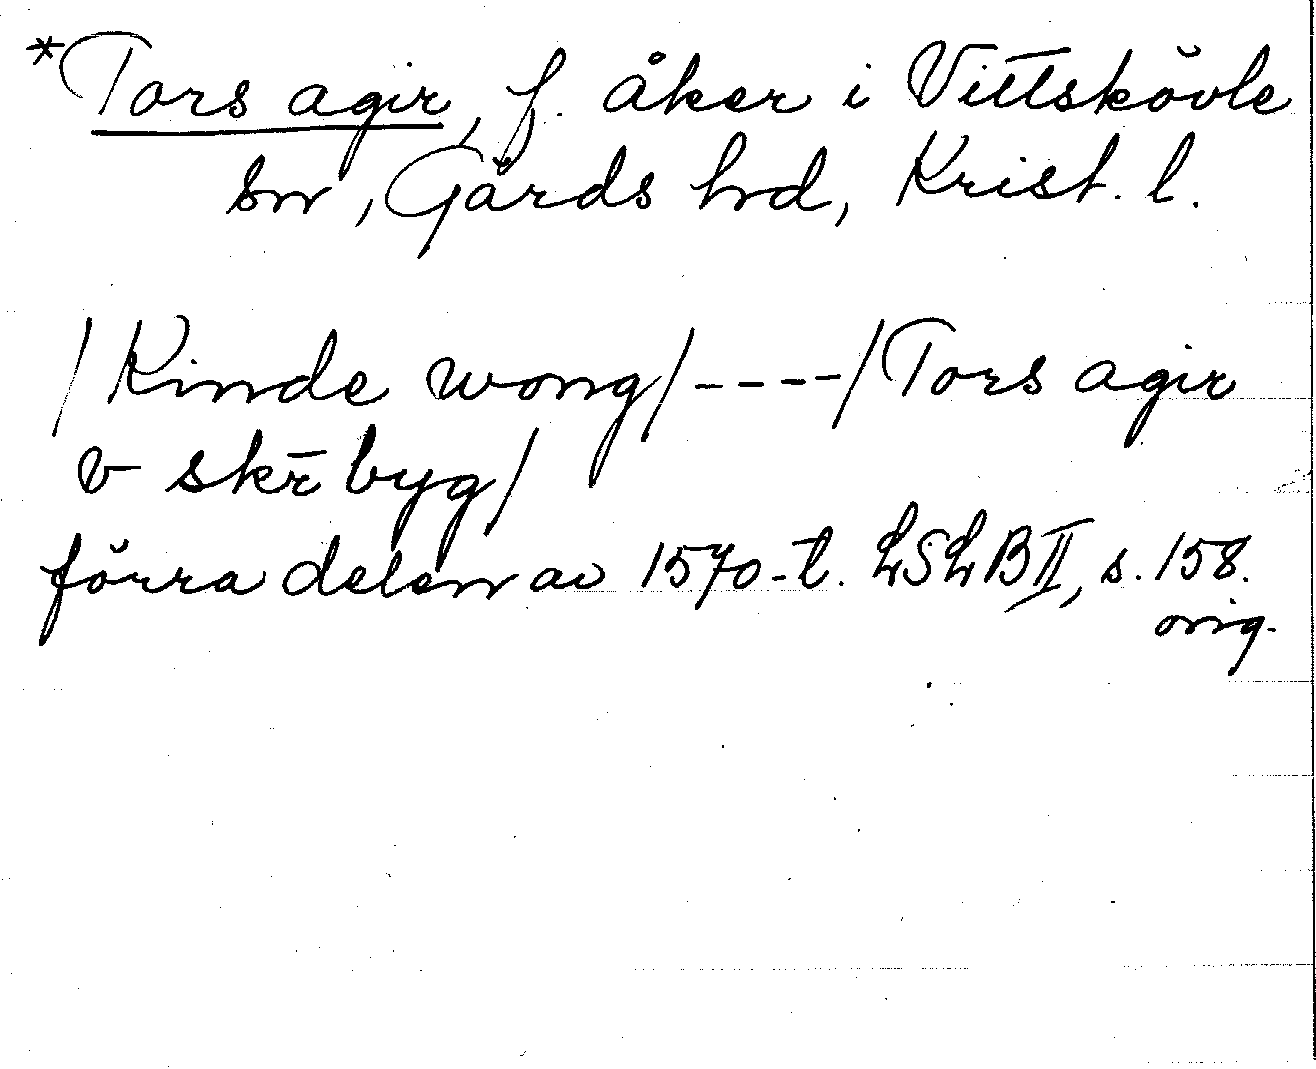 *Tors agir, f. åker i Vittskövle
sn, Gärds hrd, Krist. l.
/Kinde wong/----/Tors agir
v skr̄ byg/
förra delen av 1570-t. LSLB II, s. 158.
orig.